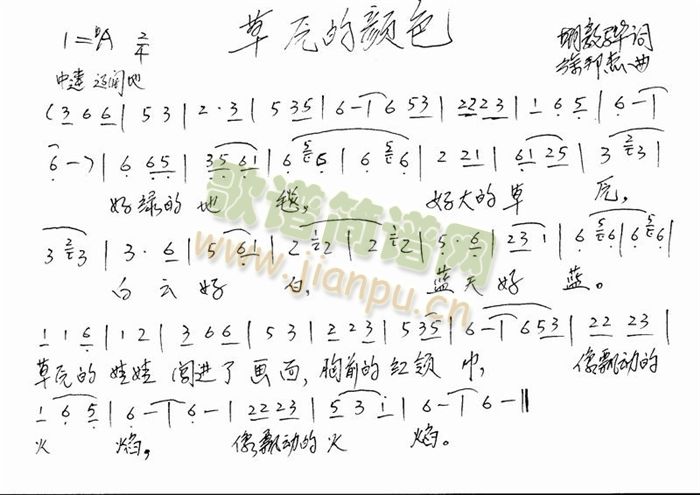 草原的颜色
1=♭A 2/4
胡敦骅词
徐邦杰曲
中速 辽阔地
(3 6 6 | 5 3 | 2 · 3 | 5 3 5 | 6 - | 6 5 3 | 2 2 2 3 | 1 6 5 | 6 - |
6 -) | 6 6 5 | 3 5 6 1 | 6 5 6 | 6 5 6 | 2 2 1 | 6 1 2 5 | 3 2 3 |
好绿的地 毯, 好大的草 原,
3 2 3 | 3 · 6 | 5 6 1 | 2 1 2 | 2 1 2 | 5 · 6 | 2 3 1 | 6 5 6 | 6 5 6 |
白云好 白, 蓝天好 蓝。
1 1 6 | 1 2 | 3 6 6 | 5 3 | 2 2 3 | 5 3 5 | 6 - | 6 5 3 | 2 2 2 3 |
草原的娃娃闯进了画面,胸前的红领 巾, 像飘动的
1 6 5 | 6 - | 6 - | 2 2 2 3 | 5 3 1 | 6 - | 6 - ‖
火 焰, 像飘动的火 焰。
歌谱简谱网
www.jianpu.cn